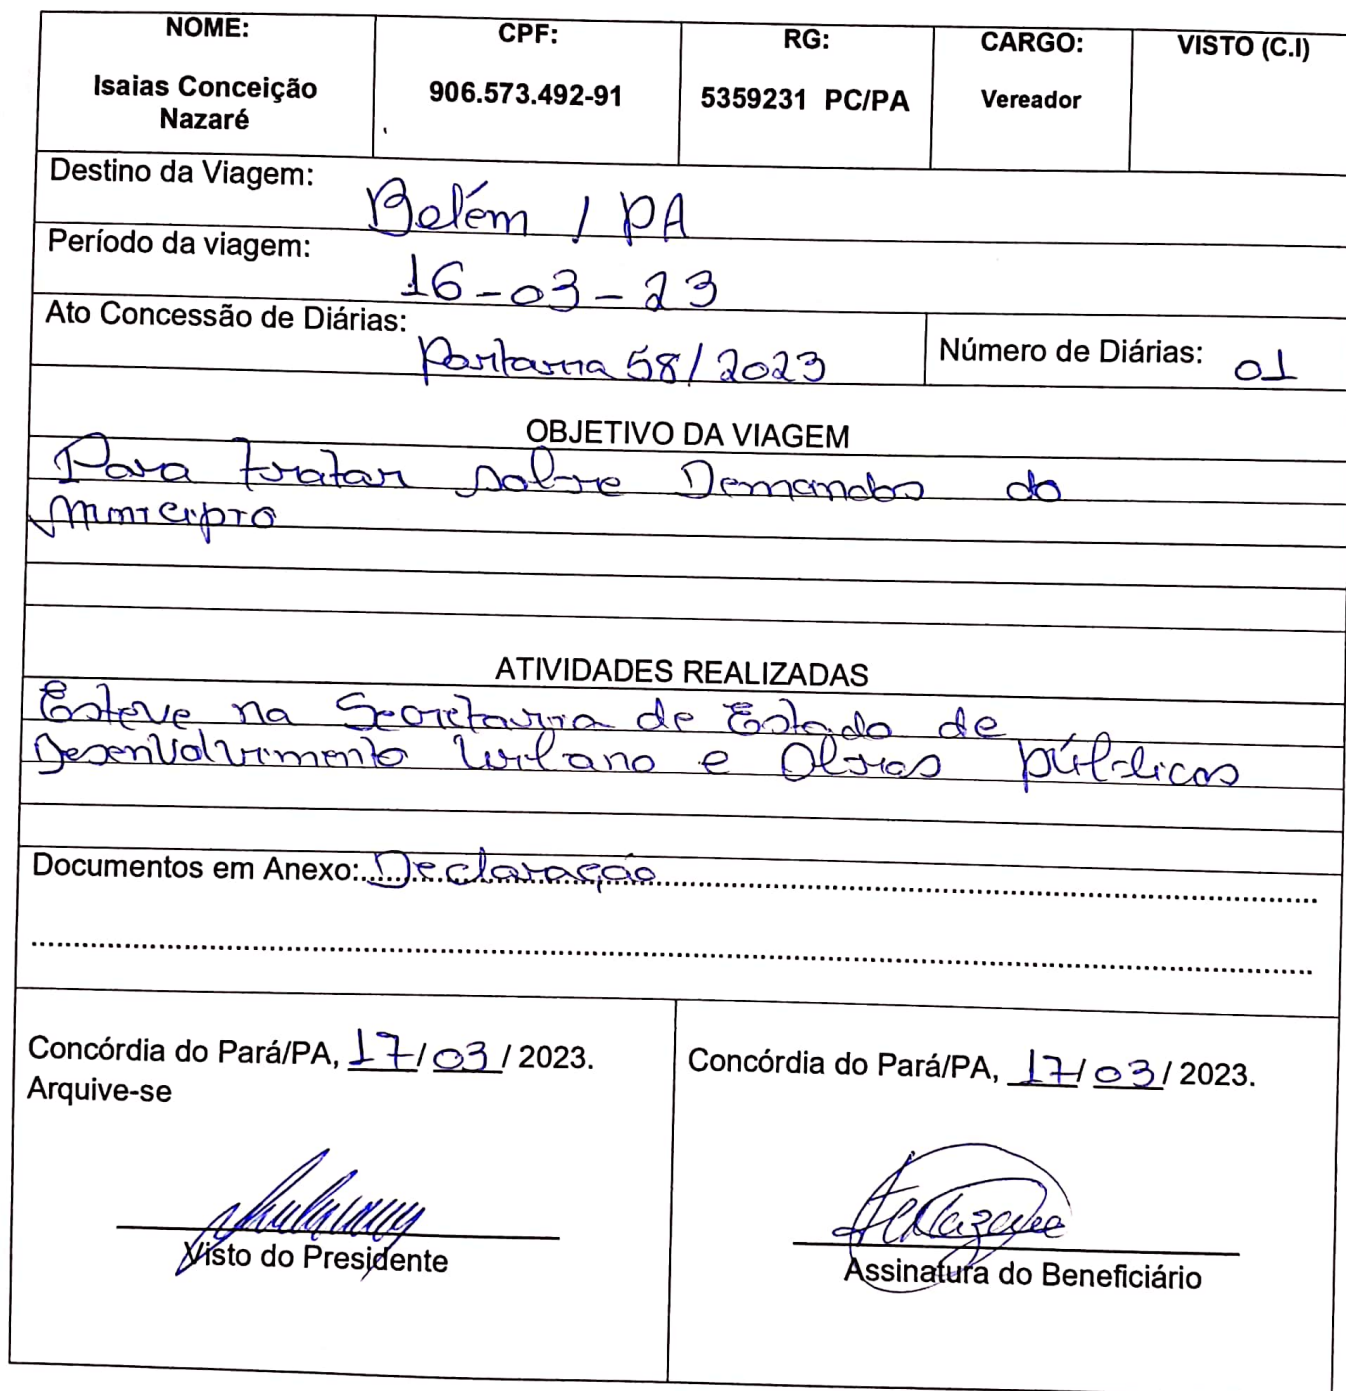 NOME: CPF: RG: CARGO: VISTO (C.I)
Isaias Conceição 906.573.492-91 5359231 PC/PA Vereador
Nazaré
Destino da Viagem: Belém / PA
Período da viagem: 16-03-23
Ato Concessão de Diárias: Portaria 58/2023 Número de Diárias: 01
OBJETIVO DA VIAGEM
Para tratar sobre Demandas do
Municipio
ATIVIDADES REALIZADAS
Esteve na Secretaria de Estado de
Desenvolvimento Urbano e Obras públicas
Documentos em Anexo: Declaração
Concórdia do Pará/PA, 17/03/2023.
Arquive-se
Visto do Presidente
Concórdia do Pará/PA, 17/03/2023.
Assinatura do Beneficiário